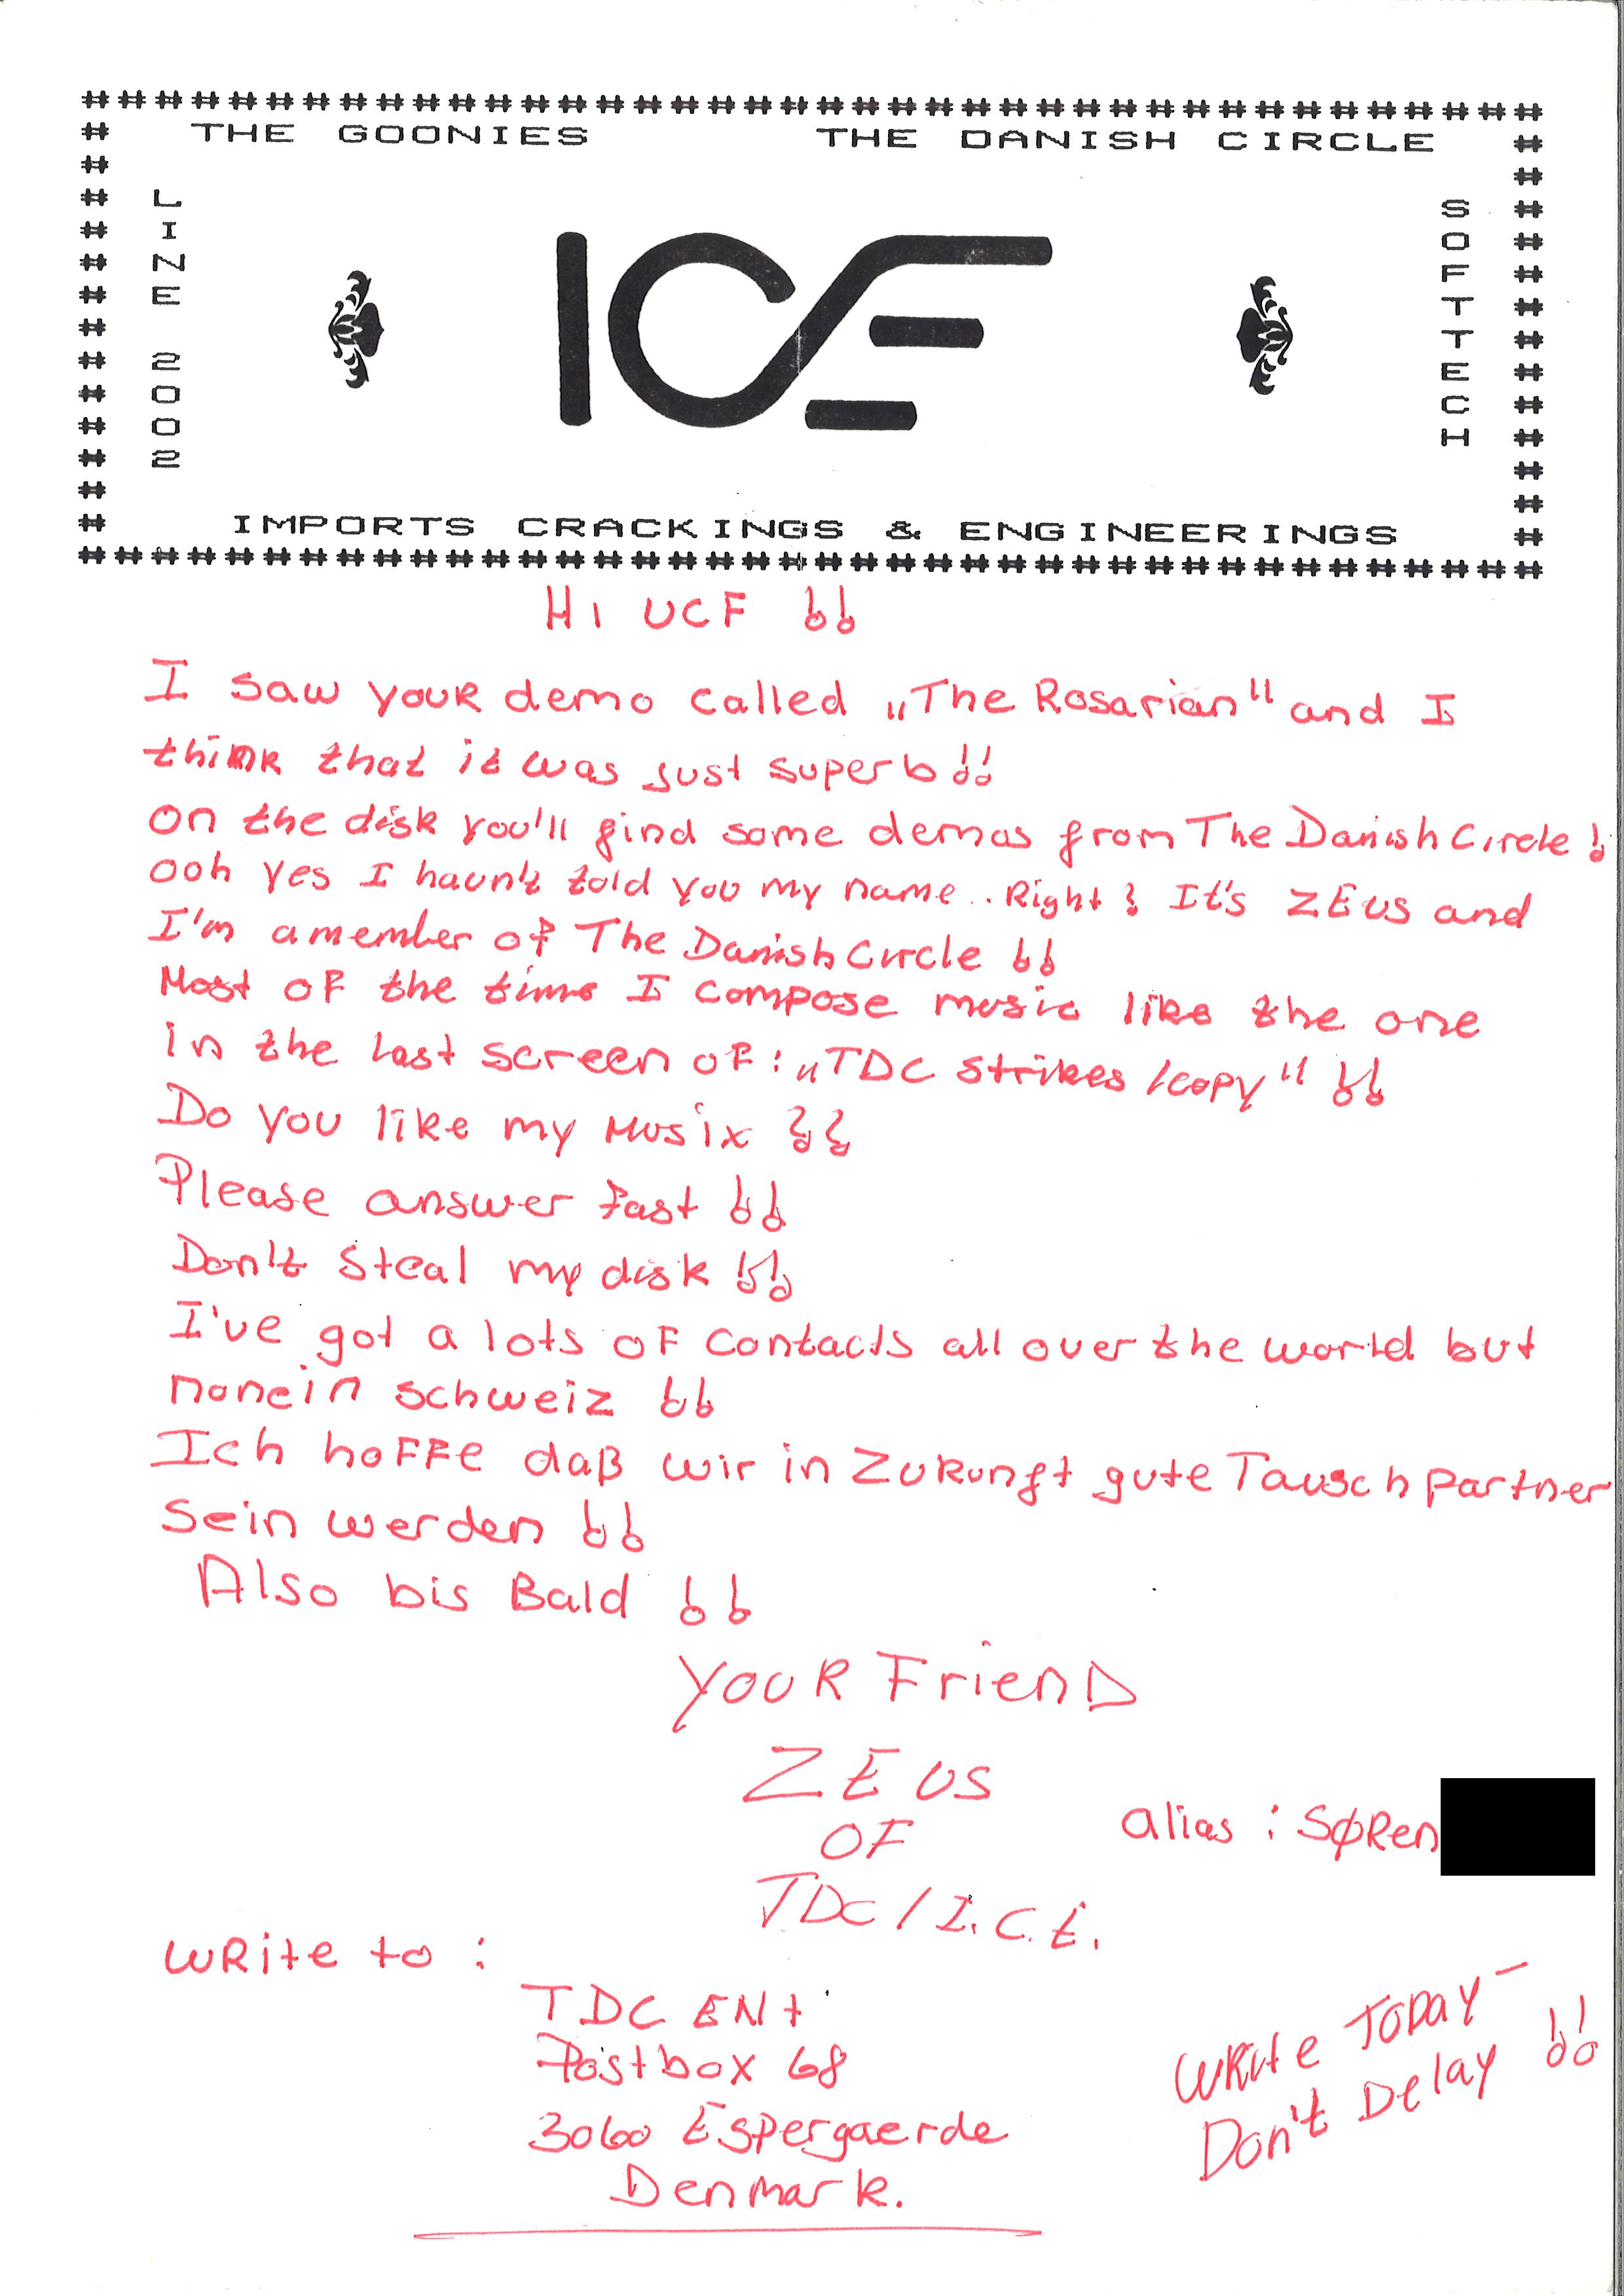 THE GOONIES THE DANISH CIRCLE
LINE 2002
SOFTTECH
ICE
IMPORTS CRACKINGS & ENGINEERINGS
HI UCF !!
I saw YOUR demo called „The Rosarian" and I
think that it was just superb!!
on the disk you'll find some demos from The Danish Circle !
ooh Yes I havn't told you my name.. Right? It's ZEUS and
I'm a member of The Danish Circle !!
Most of the time I compose music like the one
in the last screen of: „TDC strikes /copy" !!
Do you like my Musix ??
Please answer fast !!
Don't steal my disk !!
I've got a lots of contacts all over the world but
none in schweiz !!
Ich hoffe daß wir in Zukunft gute Tausch partner
sein werden !!
Also bis Bald !!
YOUR FrienD
ZEUS
OF
TDC / I.C.E.
alias : SØRen
WRite to :
TDC ENt
Postbox 68
3060 Espergaerde
Denmark.
WRite TODAY-
Don't Delay !!